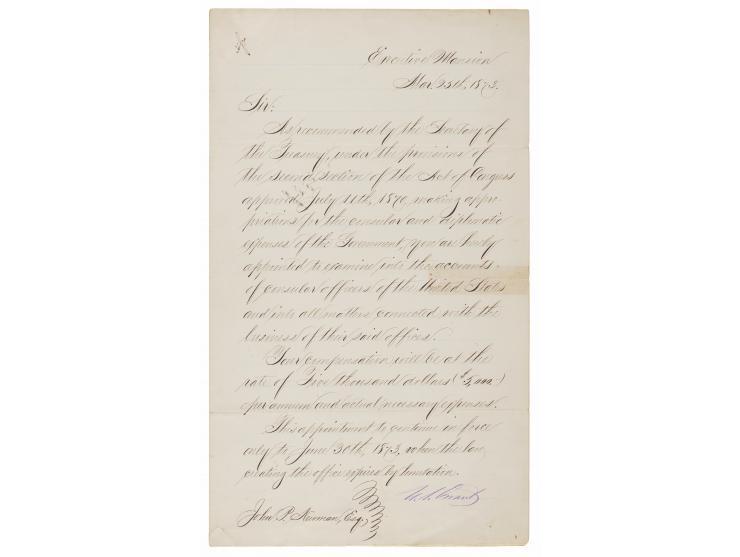 Executive Mansion
Mar. 25th, 1873.
Sir:
As recommended by the Secretary of
the Treasury, under the provisions of
the second section of the Act of Congress
approved July 11th, 1870, making appro-
priations for the consular and diplomatic
expenses of the Government, you are hereby
appointed to examine into the accounts
of consular officers of the United States
and into all matters connected with the
business of their said offices.
Your compensation will be at the
rate of Five thousand dollars ($5,000)
per annum and actual necessary expenses.
This appointment to continue in force
only to June 30th, 1873, when the law
creating the office expires by limitation.
U. S. Grant
John P. Newman, Esq.